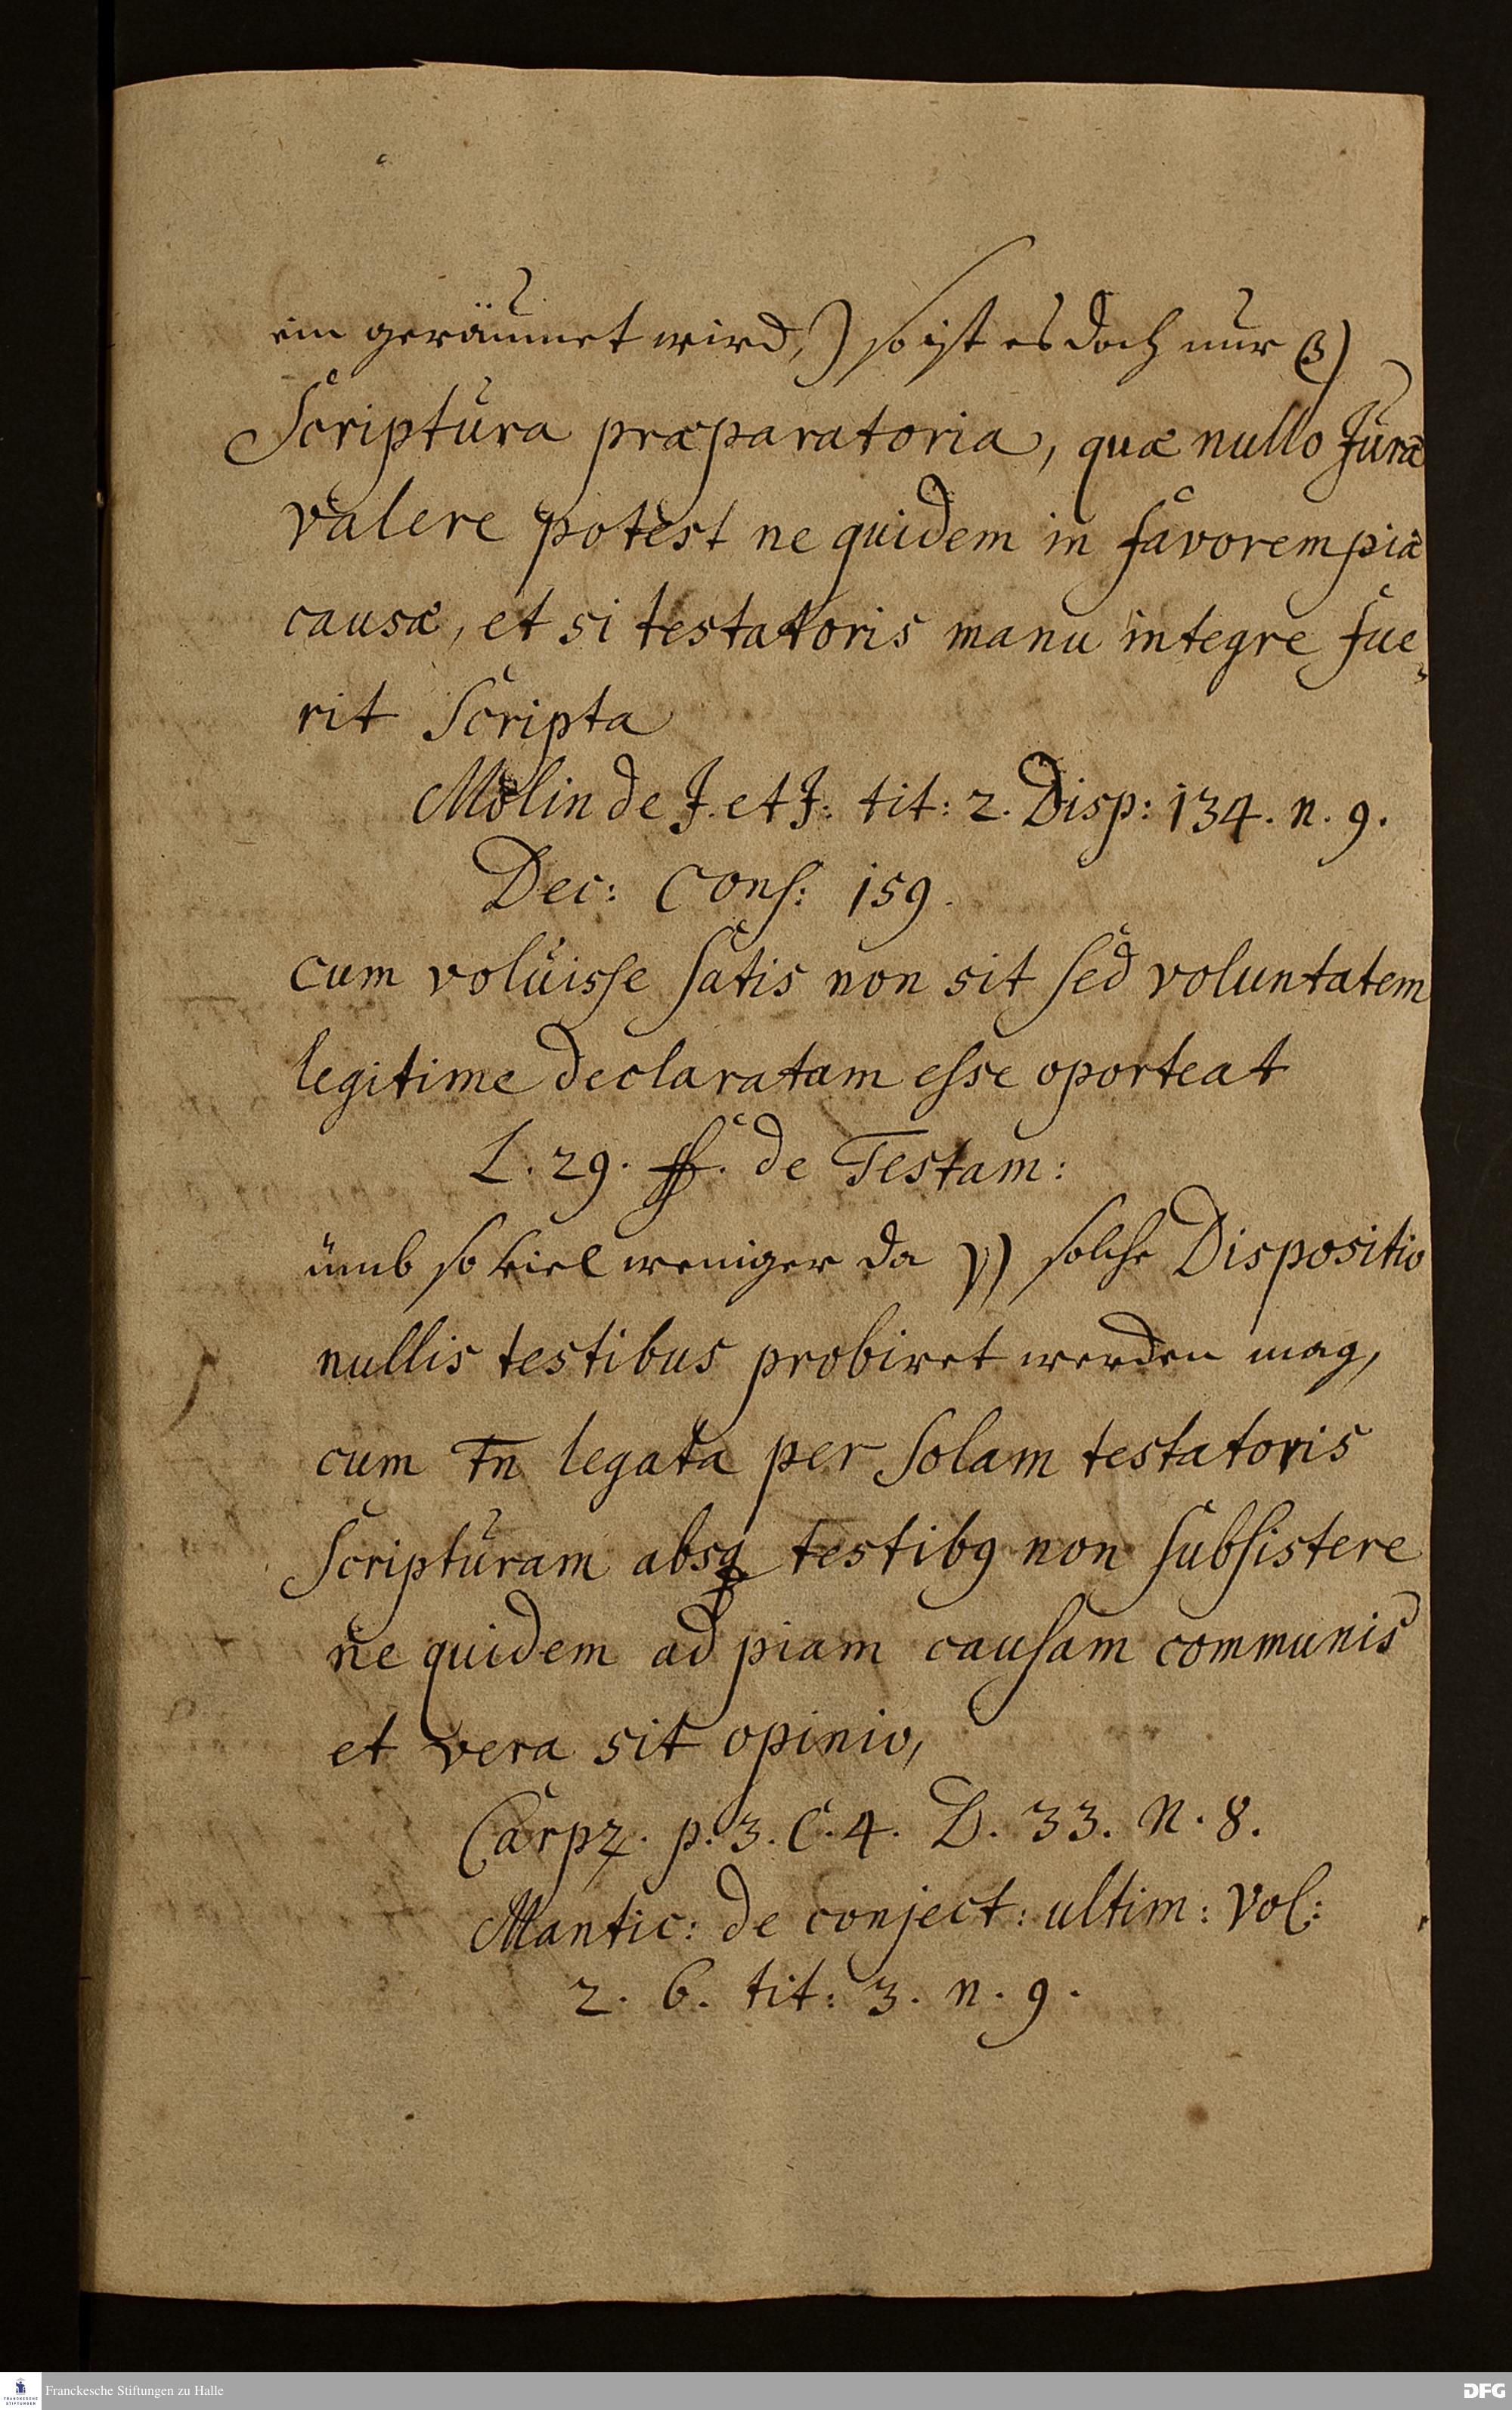 ein geräumet wird,) so ist es doch nur β)
Scriptura præparatoria, quæ nullo Jura
valere potest ne quidem in favorem piæ
causæ, et si testatoris manu integre fue¬
rit Scripta
Molin de J. et J. tit: 2. Disp: 134. n. 9.
Dec: Cons: 159.
cum voluisse satis non sit sed voluntatem
legitime declaratam esse oporteat
L. 29. ff. de Testam:
ümb so viel weniger da γ) solche Dispositio
nullis testibus probiret werden mag,
cum tn̄ legata per solam testatoris
Scripturam absq testib9 non subsistere
ne quidem ad piam causam communis
et vera sit opinio,
Carpz. p. 3. C. 4. D. 33. n. 8.
Mantic: de conject: ultim: Vol:
2. 6. tit: 3. n. 9.
Franckesche Stiftungen zu Halle
DFG